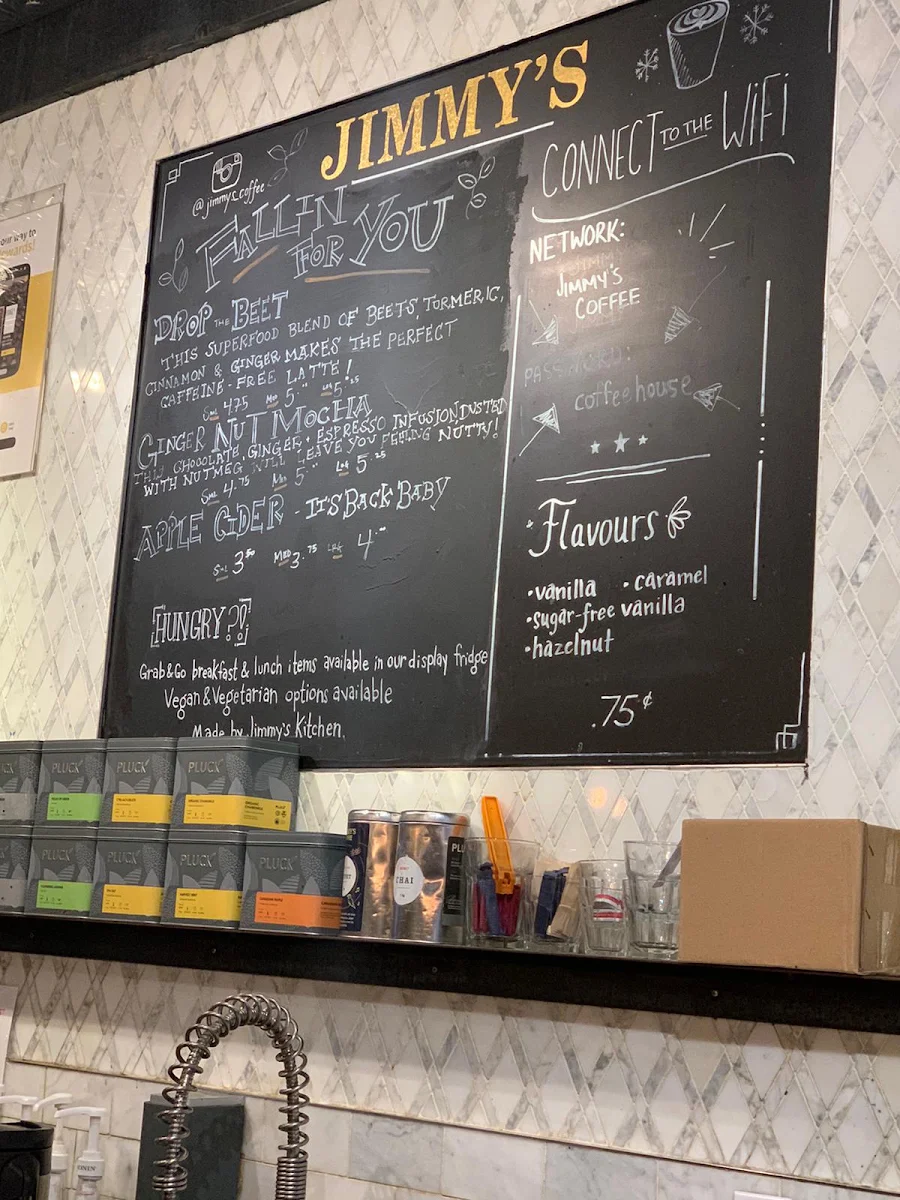 JIMMY'S
@jimmys_coffee
FALL-IN
FOR YOU
DROP THE BEET
THIS SUPERFOOD BLEND OF BEETS, TURMERIC,
CINNAMON & GINGER MAKES THE PERFECT
CAFFEINE-FREE LATTE!
SML 4.75 MED 5.00 LRG 5.25
GINGER NUT MOCHA
THIS CHOCOLATE, GINGER, & ESPRESSO INFUSION, DUSTED
WITH NUTMEG WILL LEAVE YOU FEELING NUTTY!
SML 4.75 MED 5.00 LRG 5.25
APPLE CIDER - IT'S BACK BABY
SML 3.50 MED 3.75 LRG 4.00
HUNGRY?!
Grab&Go breakfast & lunch items available in our display fridge
Vegan & Vegetarian options available
Made by Jimmy's Kitchen
CONNECT TO THE WIFI
NETWORK:
JIMMY'S
COFFEE
PASSWORD:
coffeehouse
Flavours
•vanilla •caramel
•sugar-free vanilla
•hazelnut
.75¢
our way to
PLUCK
PLUCK
PLUCK
PLUCK
PLUCK
PLUCK
PLUCK
CHAI
PLU